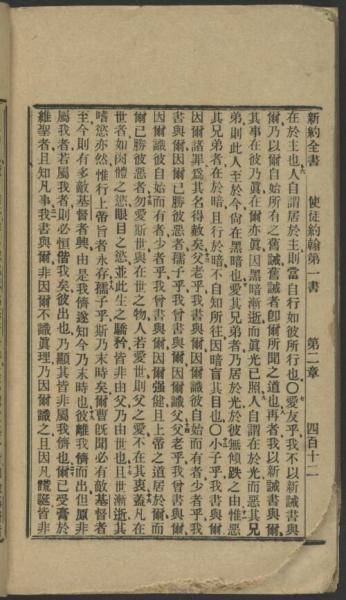 新約全書　使徒約翰第一書　第二章　四百十二
在於主也人自謂居於主則當自行如彼所行也〇愛友乎我不以新誡書與
爾乃以爾自始所有之舊誡舊者卽爾所聞之道也再者我以新誡書與爾
其事在彼乃眞在爾亦眞因黑暗漸逝而眞光已照人自謂在於光而惡其兄
弟則此人至於今尙在黑暗也愛其兄弟者乃居於光於彼無傾跌之由惟惡
其兄弟者在於暗且行於暗不自知所往因暗盲其目也〇小子乎我書與爾
因爾諸罪爲其名得赦矣父老乎我書與爾因爾識彼自始而有者少者乎我
書與爾因爾已勝彼惡者孺子乎我曾書與爾因爾識父父老乎我曾書與爾
因爾識彼自始而有者少者乎我曾書與爾因爾强健且上帝之道居於爾而
爾已勝彼惡者勿愛斯世與在世之物人若愛世則父之愛不在其衷蓋凡在
世者如肉體之慾眼目之慾並此生之驕矜皆非由父乃由世也且世漸逝其
嗜慾亦然惟行上帝旨者永存孺子乎斯乃末時矣爾曹旣聞必有敵基督者
至今則有多敵基督者興由是我儕遂知今乃末時也彼離我儕而出但原非
屬我者若屬我者則必恒偕我矣彼出也乃顯其皆非屬我儕也爾已受膏於
維聖者且知凡事我書與爾非因爾不識眞理乃因爾識之且因凡謊誕皆非